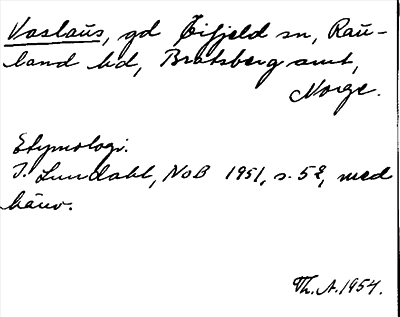 Vaslaus, gd Eifjeld sn, Rau-
land hd, Bratsberg amt,
Norge.
Etymologi.
I. Lundahl, NoB 1951, s. 52, med
hänv.
Th. A. 1954.